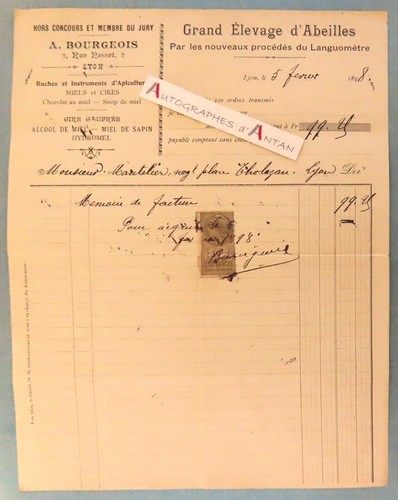 HORS CONCOURS ET MEMBRE DU JURY
A. BOURGEOIS
2, Rue Passet, 2
LYON
Ruches et Instruments d'Apiculture
MIELS et CIRES
Chocolat au miel — Sirop de miel
CIRE GAUFRÉE
ALCOOL DE MIEL - MIEL DE SAPIN
HYDROMEL
Grand Élevage d'Abeilles
Par les nouveaux procédés du Languomètre
Lyon, le 5 fevrier 1898.
ordres transmis
Fr 99.25
payable comptant sans
AUTOGRAPHES D'ANTAN
Monsieur Martelier, negt place Tholozan. Lyon
Memoire de facture 99.25
Pour acquit le 5
98
Bourgeois